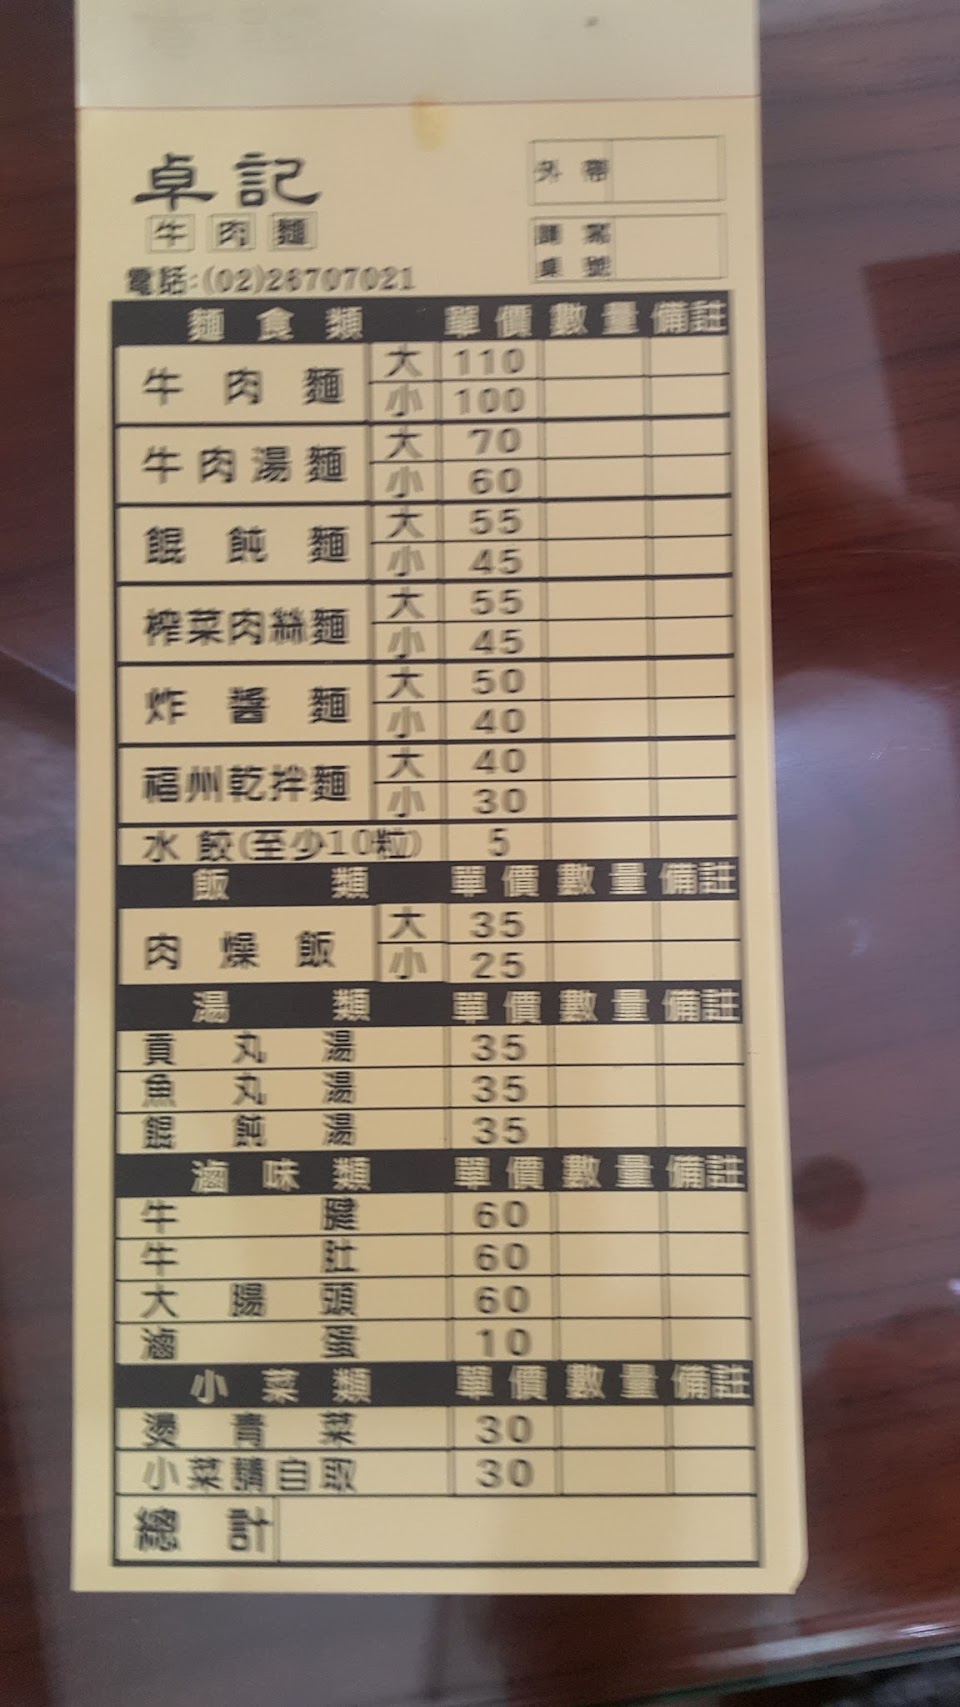 卓記
牛肉麵
外帶
請寫桌號
電話:(02)28707021
麵食類 單價 數量 備註
牛肉麵 大 110
小 100
牛肉湯麵 大 70
小 60
餛飩麵 大 55
小 45
榨菜肉絲麵 大 55
小 45
炸醬麵 大 50
小 40
福州乾拌麵 大 40
小 30
水餃(至少10粒) 5
飯類 單價 數量 備註
肉燥飯 大 35
小 25
湯類 單價 數量 備註
貢丸湯 35
魚丸湯 35
餛飩湯 35
滷味類 單價 數量 備註
牛腱 60
牛肚 60
大腸頭 60
滷蛋 10
小菜類 單價 數量 備註
燙青菜 30
小菜請自取 30
總計